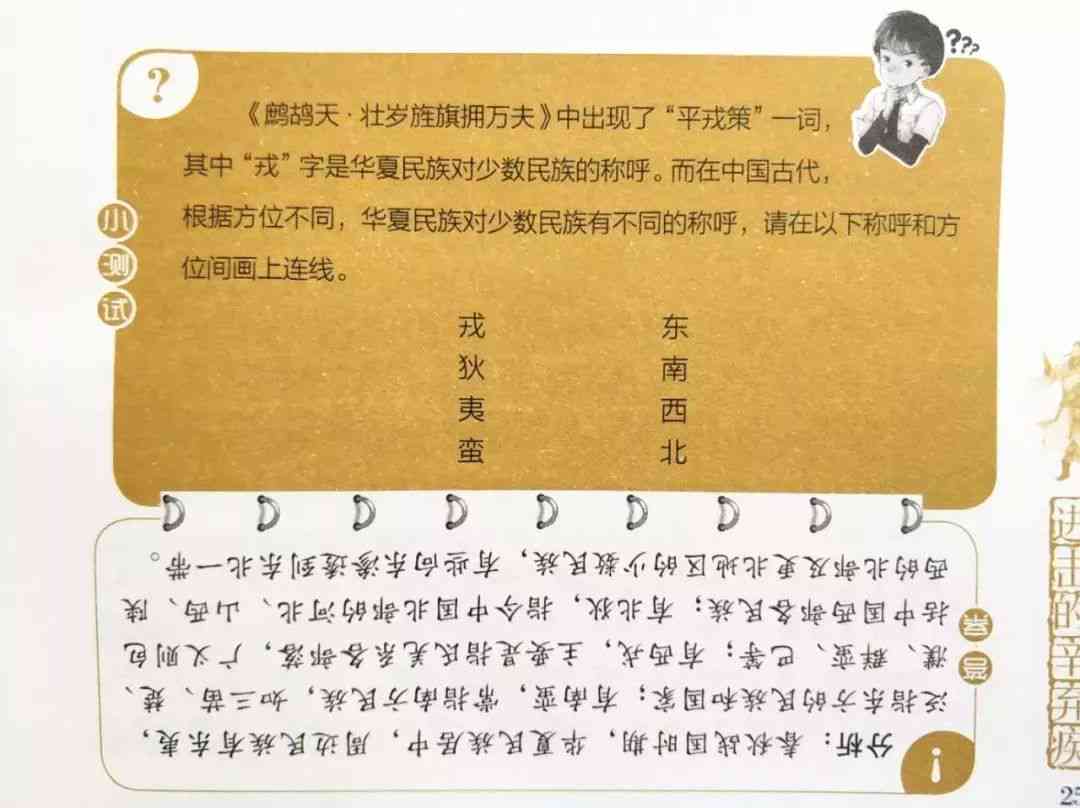 ?
???
小测试
《鹧鸪天·壮岁旌旗拥万夫》中出现了“平戎策”一词，
其中“戎”字是华夏民族对少数民族的称呼。而在中国古代，
根据方位不同，华夏民族对少数民族有不同的称呼，请在以下称呼和方
位间画上连线。
戎 东
狄 南
夷 西
蛮 北
答案
分析：春秋战国时期，华夏民族居中，周边民族有东夷，
泛指东方的民族和国家；有南蛮，常指南方民族，如三苗、楚、
濮、群蛮、巴等；有西戎，主要是指氐羌系各部落，广义则包
括中国西部各民族；有北狄，指今中国北部的河北、山西、陕
西的北部及更北地区的少数民族，有些向东渗透到东北一带。
进击的辛弃疾